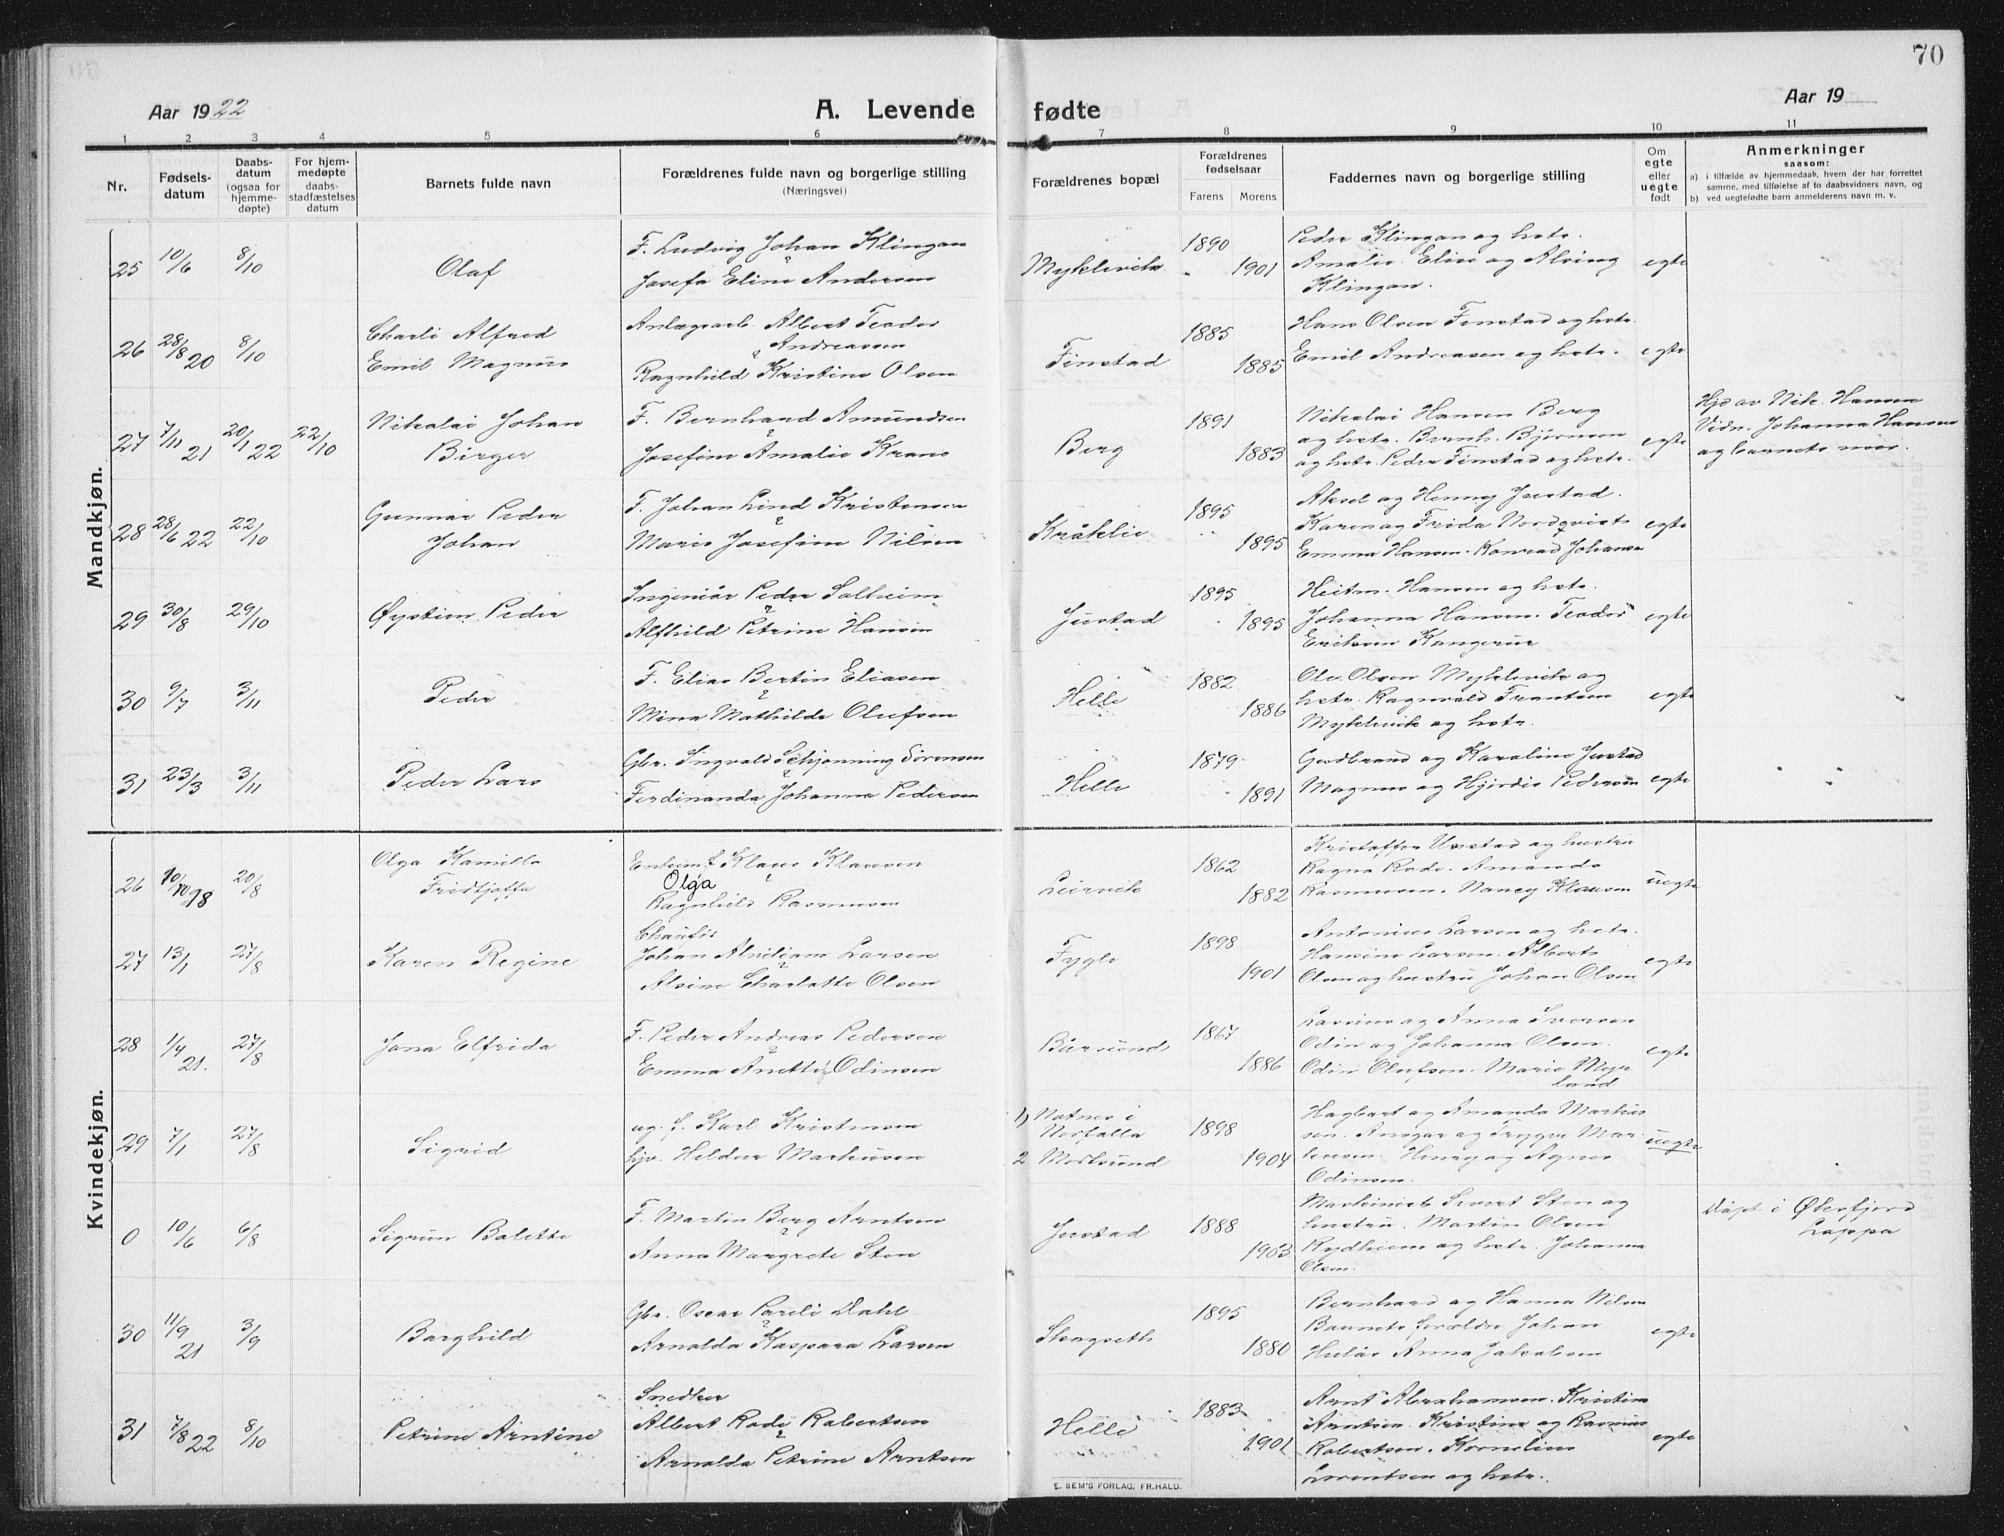 70
Aar 1922
A. Levende fødte
Aar 19
1 2 3 4 5 6 7 8 9 10 11
Nr.
Fødsels-
datum
Daabs-
datum
(ogsaa for
hjemme-
døpte)
For hjem-
medøpte
daabs-
stadfæstelses
datum
Barnets fulde navn
Forældrenes fulde navn og borgerlige stilling
(Næringsvei)
Forældrenes bopæl
Forældrenes
fødselsaar
Farens Morens
Faddernes navn og borgerlige stilling
Om
egte
eller
uegte
født
Anmerkninger
saasom:
a) i tilfælde av hjemmedaab, hvem der har forrettet
samme, med tilføielse af to daabsvidners navn, og
b) ved uegtefødte barn anmelderens navn m. v.
Mandkjøn.
25 10/6 8/10 Olaf
F. Ludvig Johan Klingan
Josefa Eline Andersen
Myklevik 1890 1901
Peder Klingan og hstr.
Amalie. Elise og Alving
Klingan.
egte
26 28/8 20 8/10
Charli Alfred
Emil Magnus
Anlægsarb. Albert Teodor
Andreassen
Ragnhild Kristine Olsen
Finstad 1885 1885
Hans Olsen Finstad og hstr.
Emil Andreasen og hstr.
egte
27 7/11 21 20/1 22 22/10
Nikolai Johan
Birger
F. Bernhard Amundsen
Josefine Amalie Krane
Berg 1891 1883
Nikolai Hansen Berg
og hstr. Bernh. Bjørnsen
og hstr. Peder Finstad og hstr.
egte
Hjd av Nik. Hansen
Vidn. Johanna Hansen
og barnets mor.
28 28/6 22 22/10
Gunnar Peder
Johan
F. Johan Lind Kristensen
Marie Josefine Nilsen
Kråklie 1895 1895
Aksel og Henny Justad.
Karen og Frida Nordqvist
Emma Hansen. Konrad Johansen
egte
29 30/8 29/10 Øystien Peder
Ingeniør Peder Solheim
Alfhild Petrine Hansen
Justad 1895 1895
Heitm. Hansen og hstr.
Johanna Hansen. Teodor
Eriksen Kangerur
egte
30 9/7 3/11 Peder
F. Elias Bertin Eliasen
Mina Mathilde Olufsen
Helle 1882 1886
Ole Olsen Myklevik og
hstr. Ragnvald Frantsen
Myklevik og hstr.
egte
31 23/3 3/11 Peder Lars
Gbr. Ingvald Schjønning Sørensen
Ferdinanda Johanna Pedersen
Helle 1879 1891
Gudbrand og Karoline Justad
Magnus og Hjørdis Pedersen
egte
Kvindekjøn.
26 10/10 98 20/8
Olga Kamilla
Fridtjoffa
Enkem. f. Klaus Klausen
Olga
Ragnhild Rasmusen
Leirvik 1862 1882
Kristoffer Unstad og hustru
Ragna Rode. Amanda
Rasmusen. Nancy Klausen
uegte
27 13/1 27/8 Karen Regine
Chaufør
Johan Alviliam Larsen
Alvine Charlotte Olsen
Fygle 1898 1901
Antonius Larsen og hstr.
Hansine Larsen. Alberts
Olsen og hustru Johan Olsen
egte
28 1/4 21. 27/8 Jana Elfrida
F. Peder Andreas Pedersen
Emma Anette Odinsen
Bürsund 1867 1886
Lavrius og Anna Iversen
Odin og Johanna Olsen.
Odin Olufsen. Marie Myr-
land
egte
29 7/1 27/8 Sigrid
ug. f. Karl Kristensen
Hildur Markusen
1) Natnes i
2 Mortsund
1898 1904
Hagbart og Amanda Markus
sen. Ansgar og Trygve Mar-
kusen. Henry og Agnes
Odinsen.
uegte
0 10/6 6/8 Sigrun Bolette
F. Martin Berg Arntsen
Anna Margrete Sten
Justad 1888 1903
Maskinist Sivert Sten og
hustru. Martin Olsen
Rydheim og hstr. Johanna
Olsen.
Døpt i Øksfjord
Loppa
30 11/9 21 3/9 Borghild
Gbr. Oscar Pareli Dahl
Arnolda Kaspara Larsen
Stengseth 1895 1880
Bernhard og Hanna Nilsen
Barnets forældre Johan
Anna Jakobsen
egte
31 7/8 22 8/10 Petrine Arntine
Snedker
Albert Rode Robertsen
Arnolda Petrine Arntsen
Helle 1883 1901
Arnt Abrahamsen. Kristine
Arntsen. Kristine og Rasmus
Robertsen. Kornelius
Lorentsen og hstr.
egte
E. SEM'S FORLAG, FR.HALD.